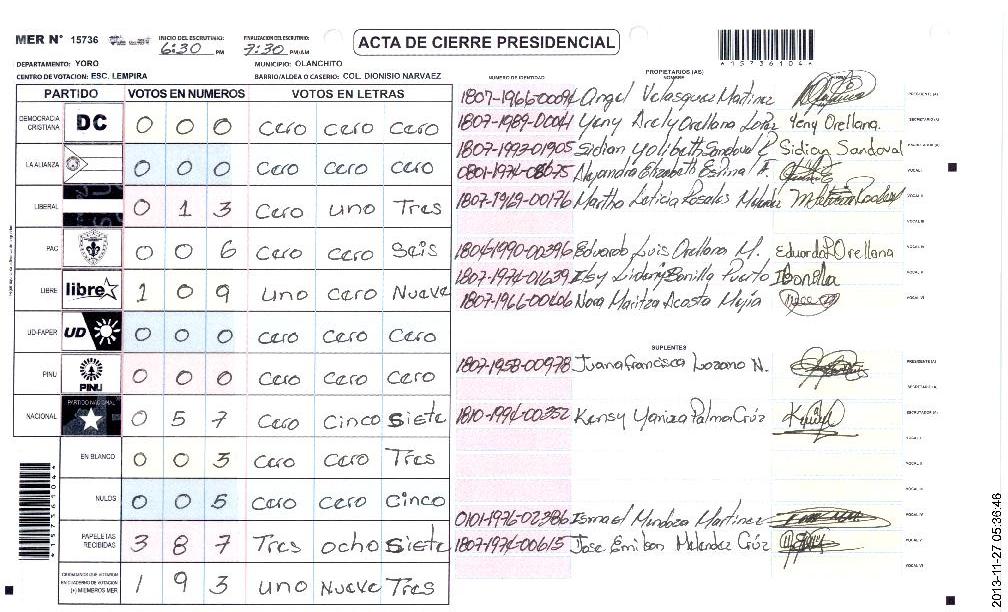 MER N° 15736 INICIO DEL ESCRUTINIO: 6:30 PM FINALIZACION DEL ESCRUTINIO: 7:30 PM/AM
ACTA DE CIERRE PRESIDENCIAL
4157361044
DEPARTAMENTO: YORO MUNICIPIO: OLANCHITO
CENTRO DE VOTACION: ESC. LEMPIRA BARRIO/ALDEA O CASERIO: COL. DIONISIO NARVAEZ
PARTIDO VOTOS EN NUMEROS VOTOS EN LETRAS
DEMOCRACIA CRISTIANA DC 0 0 0 Cero Cero Cero
LA ALIANZA 0 0 0 Cero Cero Cero
LIBERAL 0 1 3 Cero uno Tres
PAC 0 0 6 Cero Cero Seis
LIBRE libre 1 0 9 Uno Cero Nueve
UD-FAPER UD 0 0 0 Cero Cero Cero
PINU PINU 0 0 0 Cero Cero Cero
NACIONAL PARTIDO NACIONAL 0 5 7 Cero Cinco Siete
EN BLANCO 0 0 3 Cero Cero Tres
NULOS 0 0 5 Cero Cero Cinco
PAPELETAS RECIBIDAS 3 8 7 Tres ocho Siete
CIUDADANOS QUE VOTARON EN CUADERNO DE VOTACION (+) MIEMBROS MER 1 9 3 uno Nueve Tres
NUMERO DE IDENTIDAD PROPIETARIOS (AS) NOMBRE
1807-1966-00094 Angel Velasquez Martinez PRESIDENTE (A)
1807-1989-00041 Yeny Arely Orellana Lopez Yeny Orellana. SECRETARIO (A)
1807-1993-01905 Sidian Yolibeth Sandoval P Sidian Sandoval
0801-1974-08675 Alejandra Elizabeth F. VOCAL I
1807-1969-00176 Martha Leticia Rosales VOCAL II
VOCAL III
1804-1990-00396 Eduardo Luis Orellana M. Eduardo L Orellana VOCAL IV
1807-1974-01639 Bonilla Puerto IBonilla VOCAL V
1807-1966-00606 Nora Maritza Acosta Mejia VOCAL VI
SUPLENTES
1807-1958-00978 Juana Francisca Lozano N. PRESIDENTE (A)
SECRETARIO (A)
1810-1994-00352 Kensy Yaniza Palma Cruz ESCRUTADOR (A)
VOCAL I
VOCAL II
VOCAL III
0101-1976-02386 Ismael Mendoza Martinez VOCAL IV
1807-1974-00615 Jose Emilson Melendez Cruz VOCAL V
VOCAL VI
4157361044
2013-11-27 05:36:46